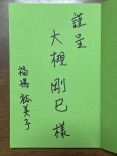 謹呈
大槻剛巳様
福嶋裕美子